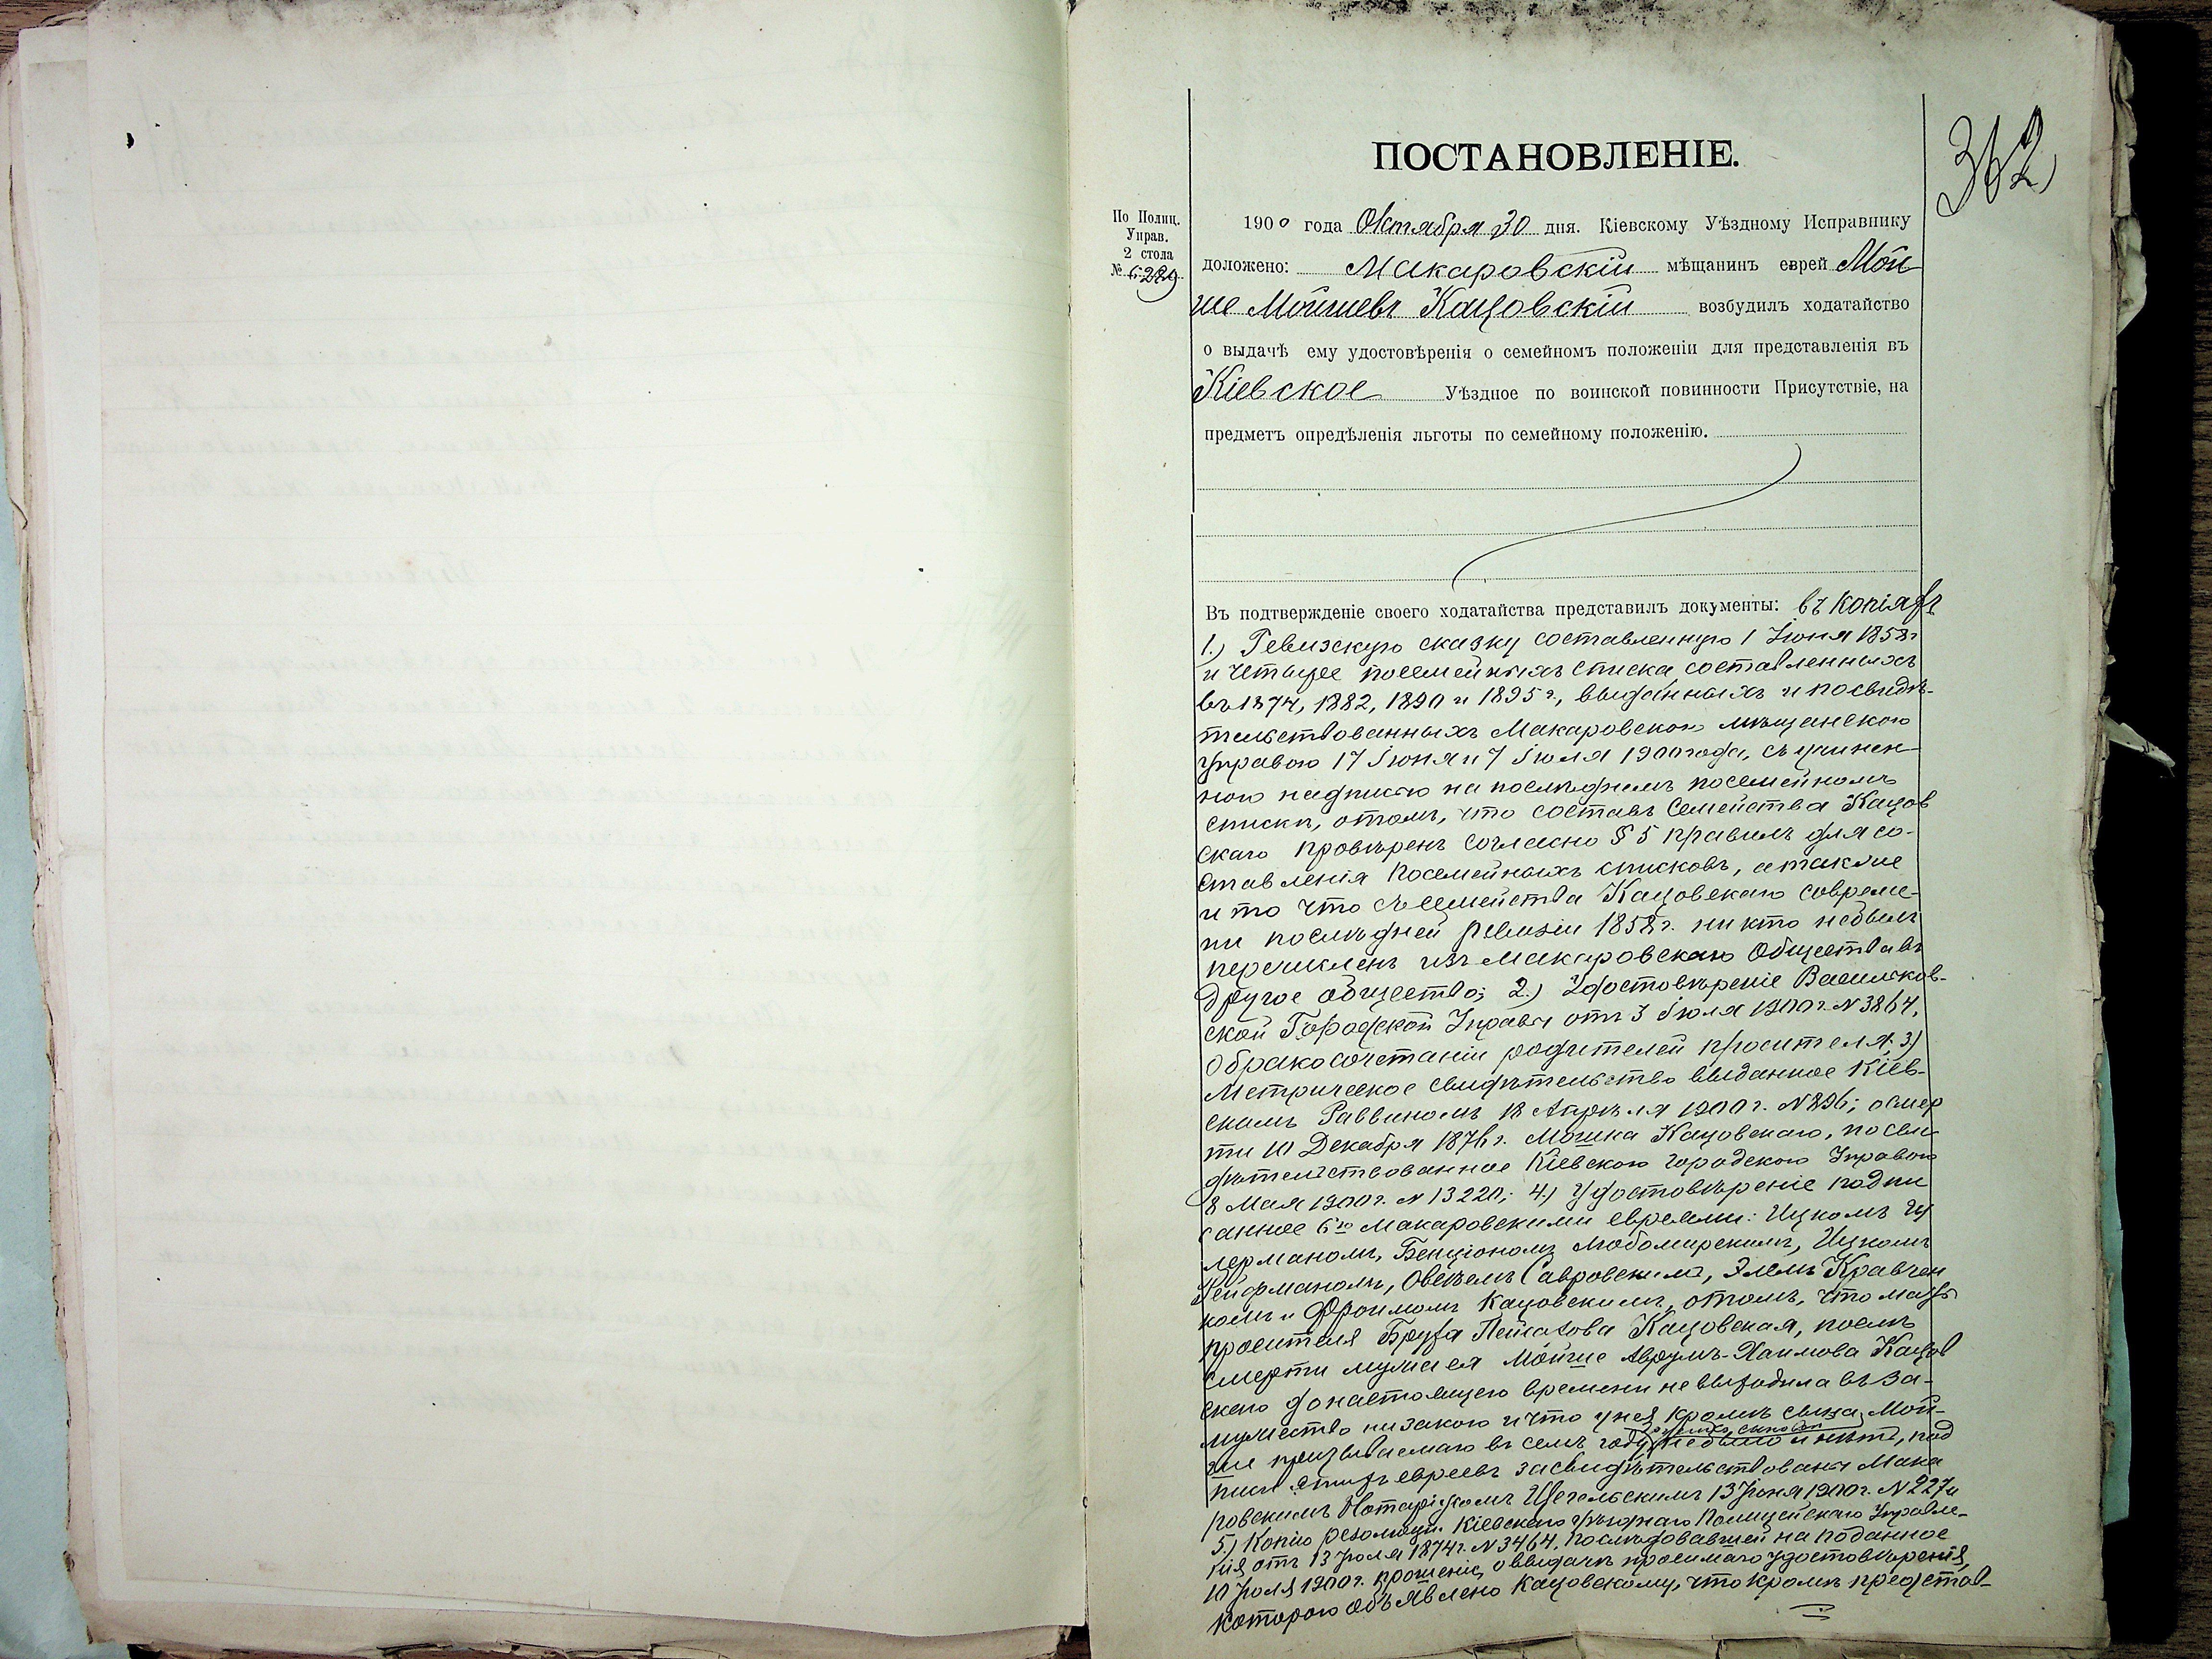 362
ПОСТАНОВЛЕНІЕ.
По Полиц.
Управ.
2 стола
№
1900 года Октября 30 дня. Кіевскому Уѣздному Исправнику
доложено: Макаровскій мѣщанинъ еврей Мой-
ше Мойшевъ Кацовскій возбудилъ ходатайство
о выдачѣ ему удостовѣренія о семейномъ положеніи для представленія въ
Кіевское Уѣздное по воинской повинности Присутствіе, на
предметъ опредѣленія льготы по семейному положенію.
Въ подтвержденіе своего ходатайства представилъ документы: въ копіяхъ
1.) Ревизскую сказку составленную 1 Іюня 1858 г
и четыре посемейныхъ списка, составленныхъ
въ 1874, 1882, 1890 и 1895 г., выданныхъ и посвидѣ-
тельствованныхъ Макаровскою мѣщанскою
управою 17 Іюня и 7 Іюля 1900 года, съ учинен-
ною надписью на послѣднемъ посемейномъ
спискѣ, о томъ, что составъ семейства Кацов
скаго провѣренъ согласно § 5 правилъ для со-
ставленія посемейныхъ списковъ, а также
и то что съ семейства Кацовскаго со време-
ни послѣдней ревизіи 1858 г. ни кто не былъ
перечисленъ изъ Макаровскаго Общества въ
другое общество; 2.) Удостовѣреніе Васильков-
ской Городской Управы отъ 3 Іюля 1900 г. N 3864,
о бракосочетаніи родителей просителя; 3)
Метрическое свидѣтельство выданное Кіев-
скимъ Раввиномъ 18 Апрѣля 1900 г. N 896; о смер
ти 10 Декабря 1876 г. Мошка Кацовскаго, посви
дѣтельствованное Кіевскою городскою Управою
8 Мая 1900 г. N 13220; 4.) Удостовѣреніе подпи
санное 6ю Макаровскими евреями: Ицкомъ
Бенціономъ Любомирскимъ, Ицкомъ
Овсѣемъ Савровскимъ, Элемъ Кравчен
комъ и Фроимомъ Кацовскимъ, о томъ, что мать
просителя Бруха Кацовская, послѣ
смерти мужа ея Мойше Аврумъ-Хаимова Кацов
скаго до настоящаго времени не выходила въ за-
мужество ни за кого и что у нея кромѣ сына Мой-
ше призываемаго въ семъ году, сыновей не было и нѣтъ, под
писи этихъ евреевъ засвидѣтельствованы Мака
ровскимъ Нотаріусомъ Щегельскимъ 13 Іюня 1900 г. N
5.) Копію резолюціи Кіевскаго уѣзднаго Полицейскаго Управле-
нія отъ 13 Іюля 1874 г. N 3464, послѣдовавшей на поданное
10 Іюля 1900 г. прошеніе, о выдачѣ просимаго удостовѣренія,
которою объявлено Кацовскому, что кромѣ представ-